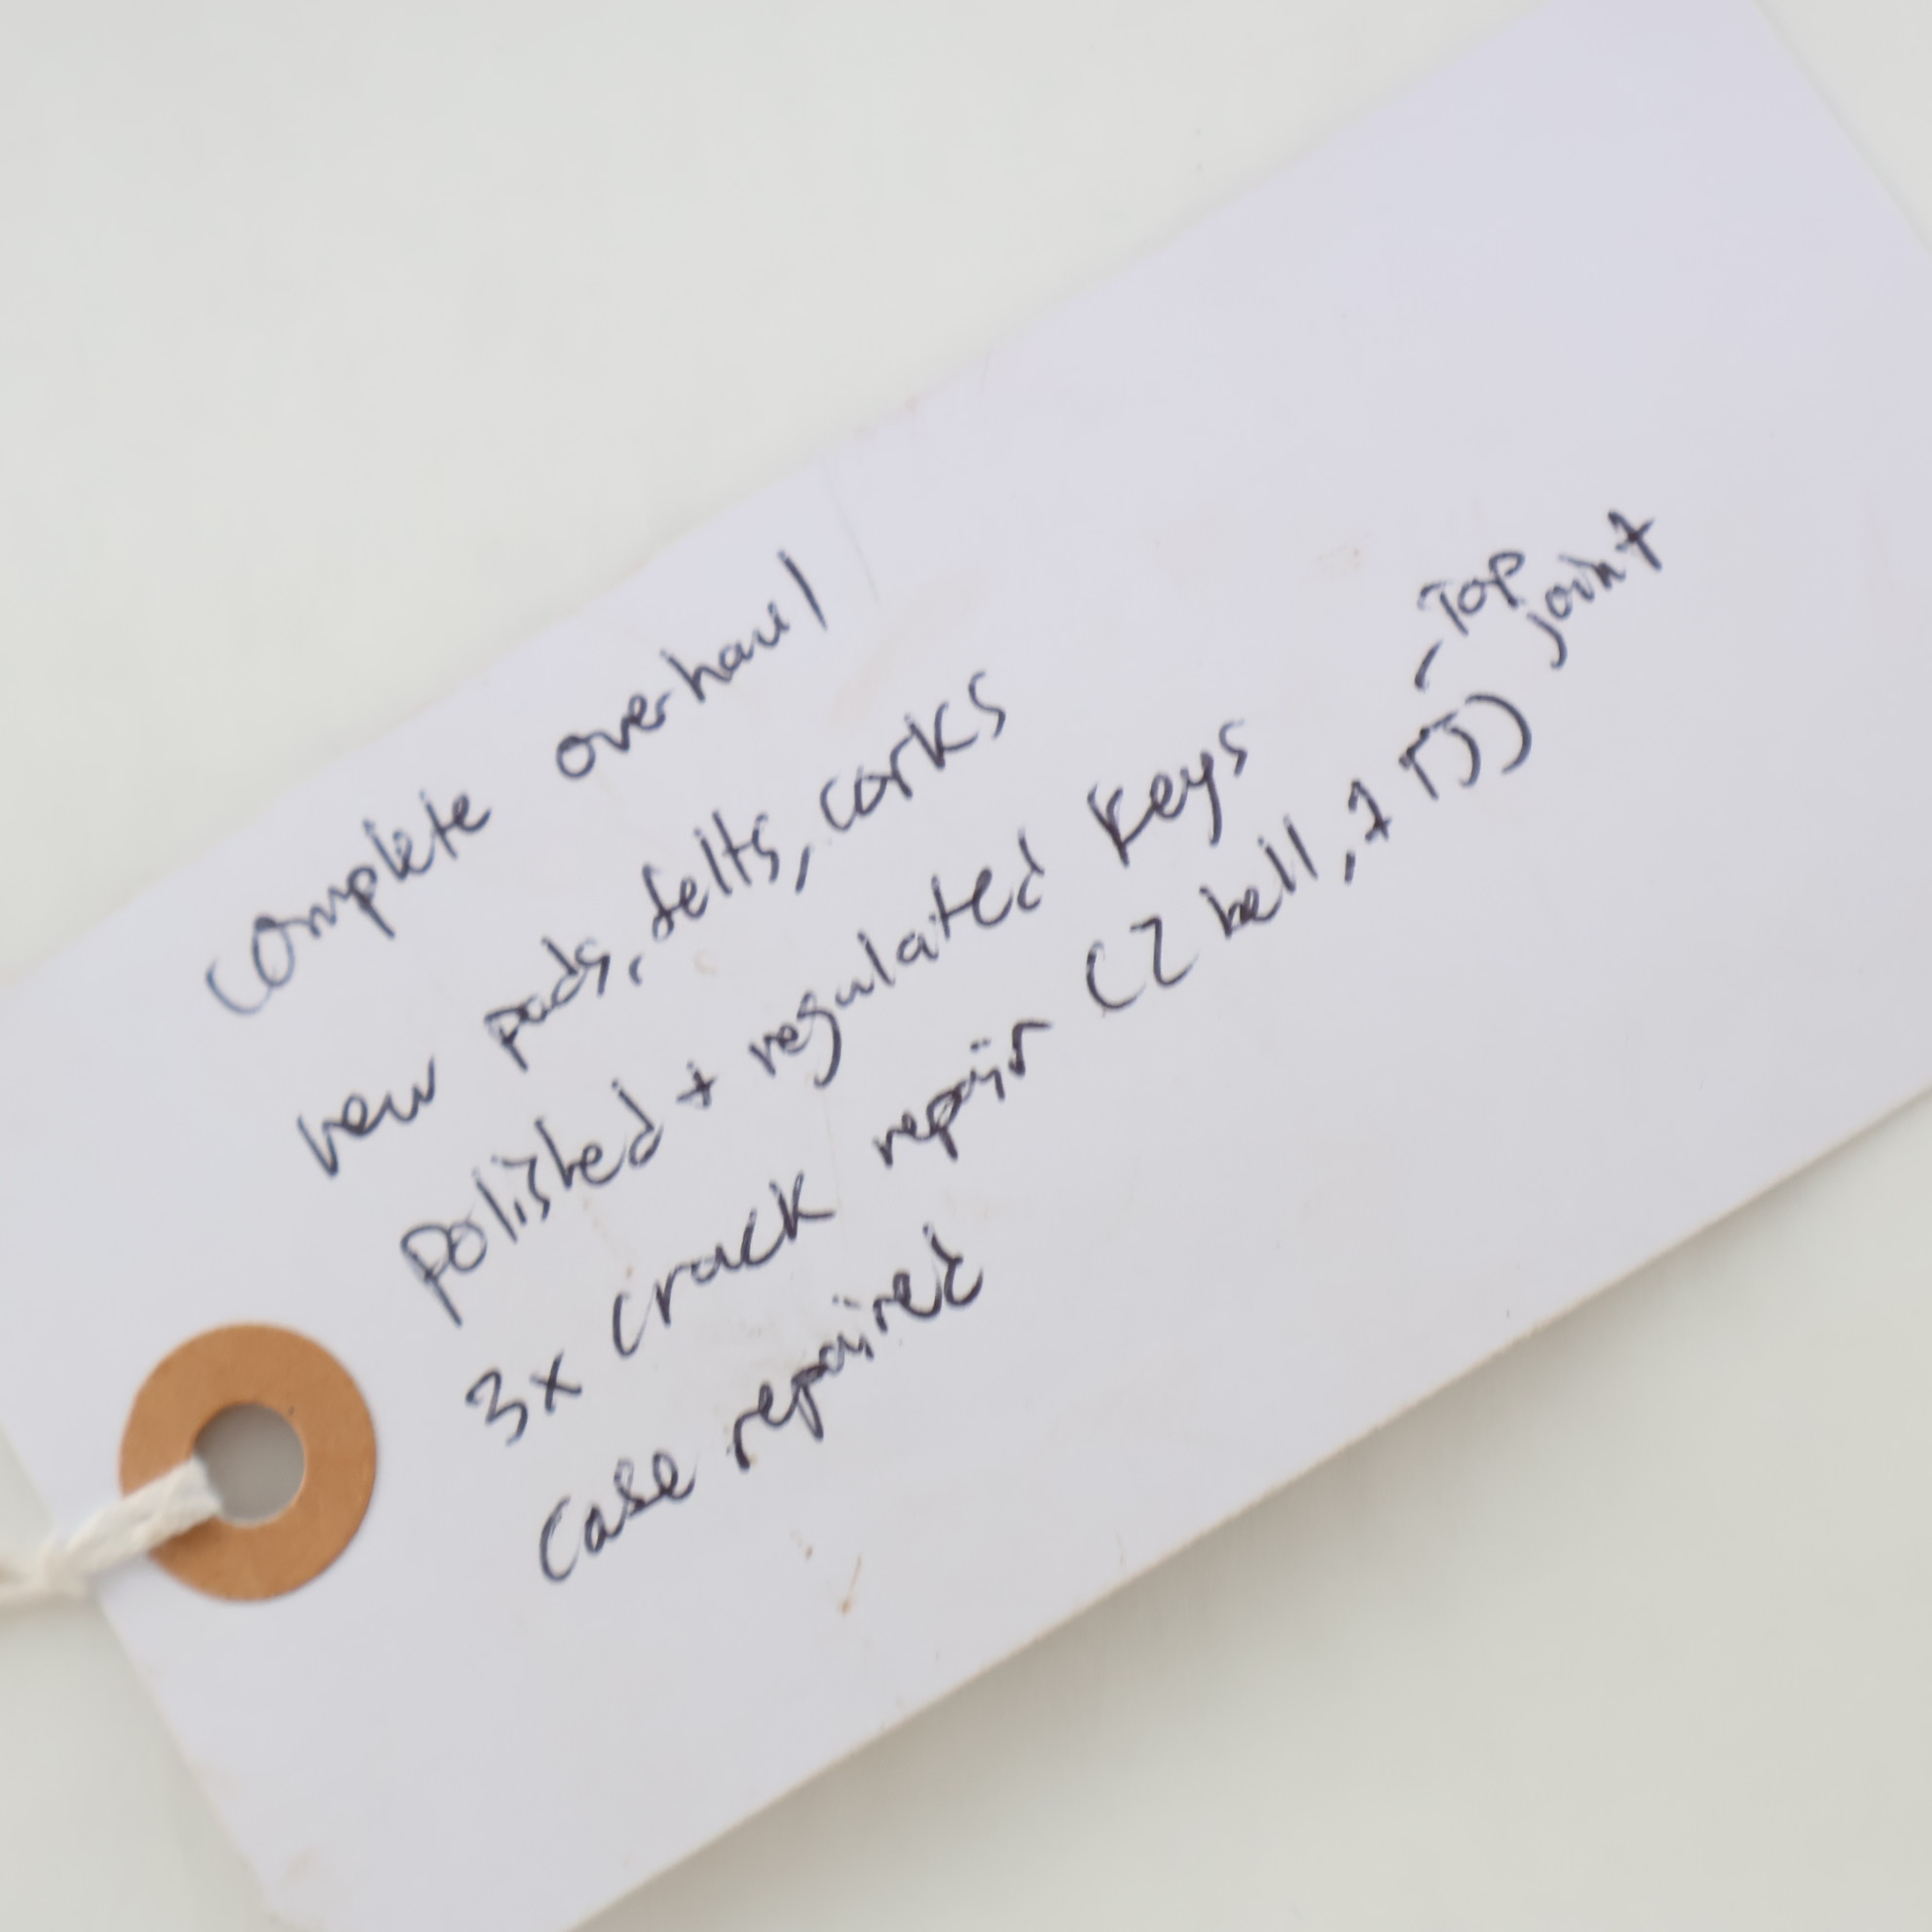 complete overhaul
new pads, felts, corks
polished + regulated keys
3x crack repair (2 bell, 1 TJ)
- Top joint
case repaired